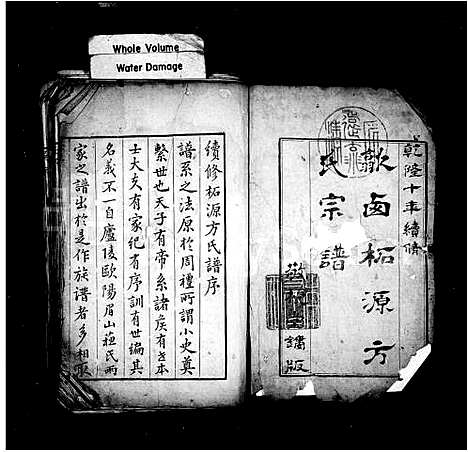 Whole Volume
Water Damage
乾隆十年續脩
歙西柘源方
氏宗譜
鐫版
續修柘源方氏譜序
譜系之法原於周禮所謂小史奠
繫世也天子有帝系諸矦有世本
士大夫有家紀有序訓有世編其
名義不一自廬陵歐陽眉山蘓氏兩
家之譜出於是作族譜者多相取